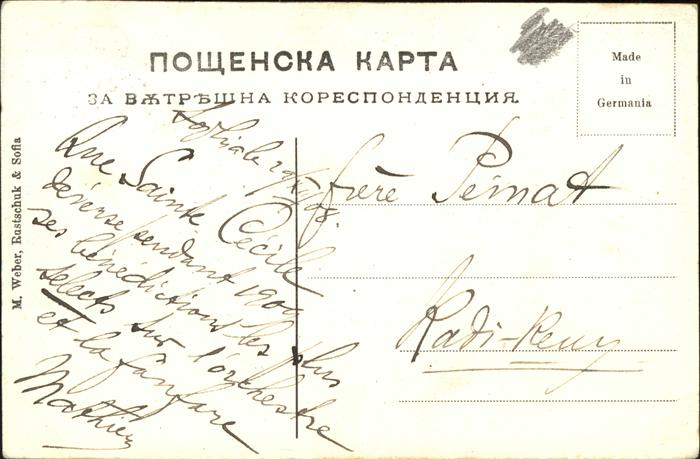 ПОЩЕНСКА КАРТА
ЗА ВѪТРѢШНА КОРЕСПОНДЕНЦИЯ.
Made
in
Germania
M. Weber, Rustschuk & Sofia
Que Sainte Cécile
déverse pendant 1909
ses bénédictions les plus
selects sur l'orchestre
et la fanfare
Mathieu
frère Pémat
Kadi-Keuy